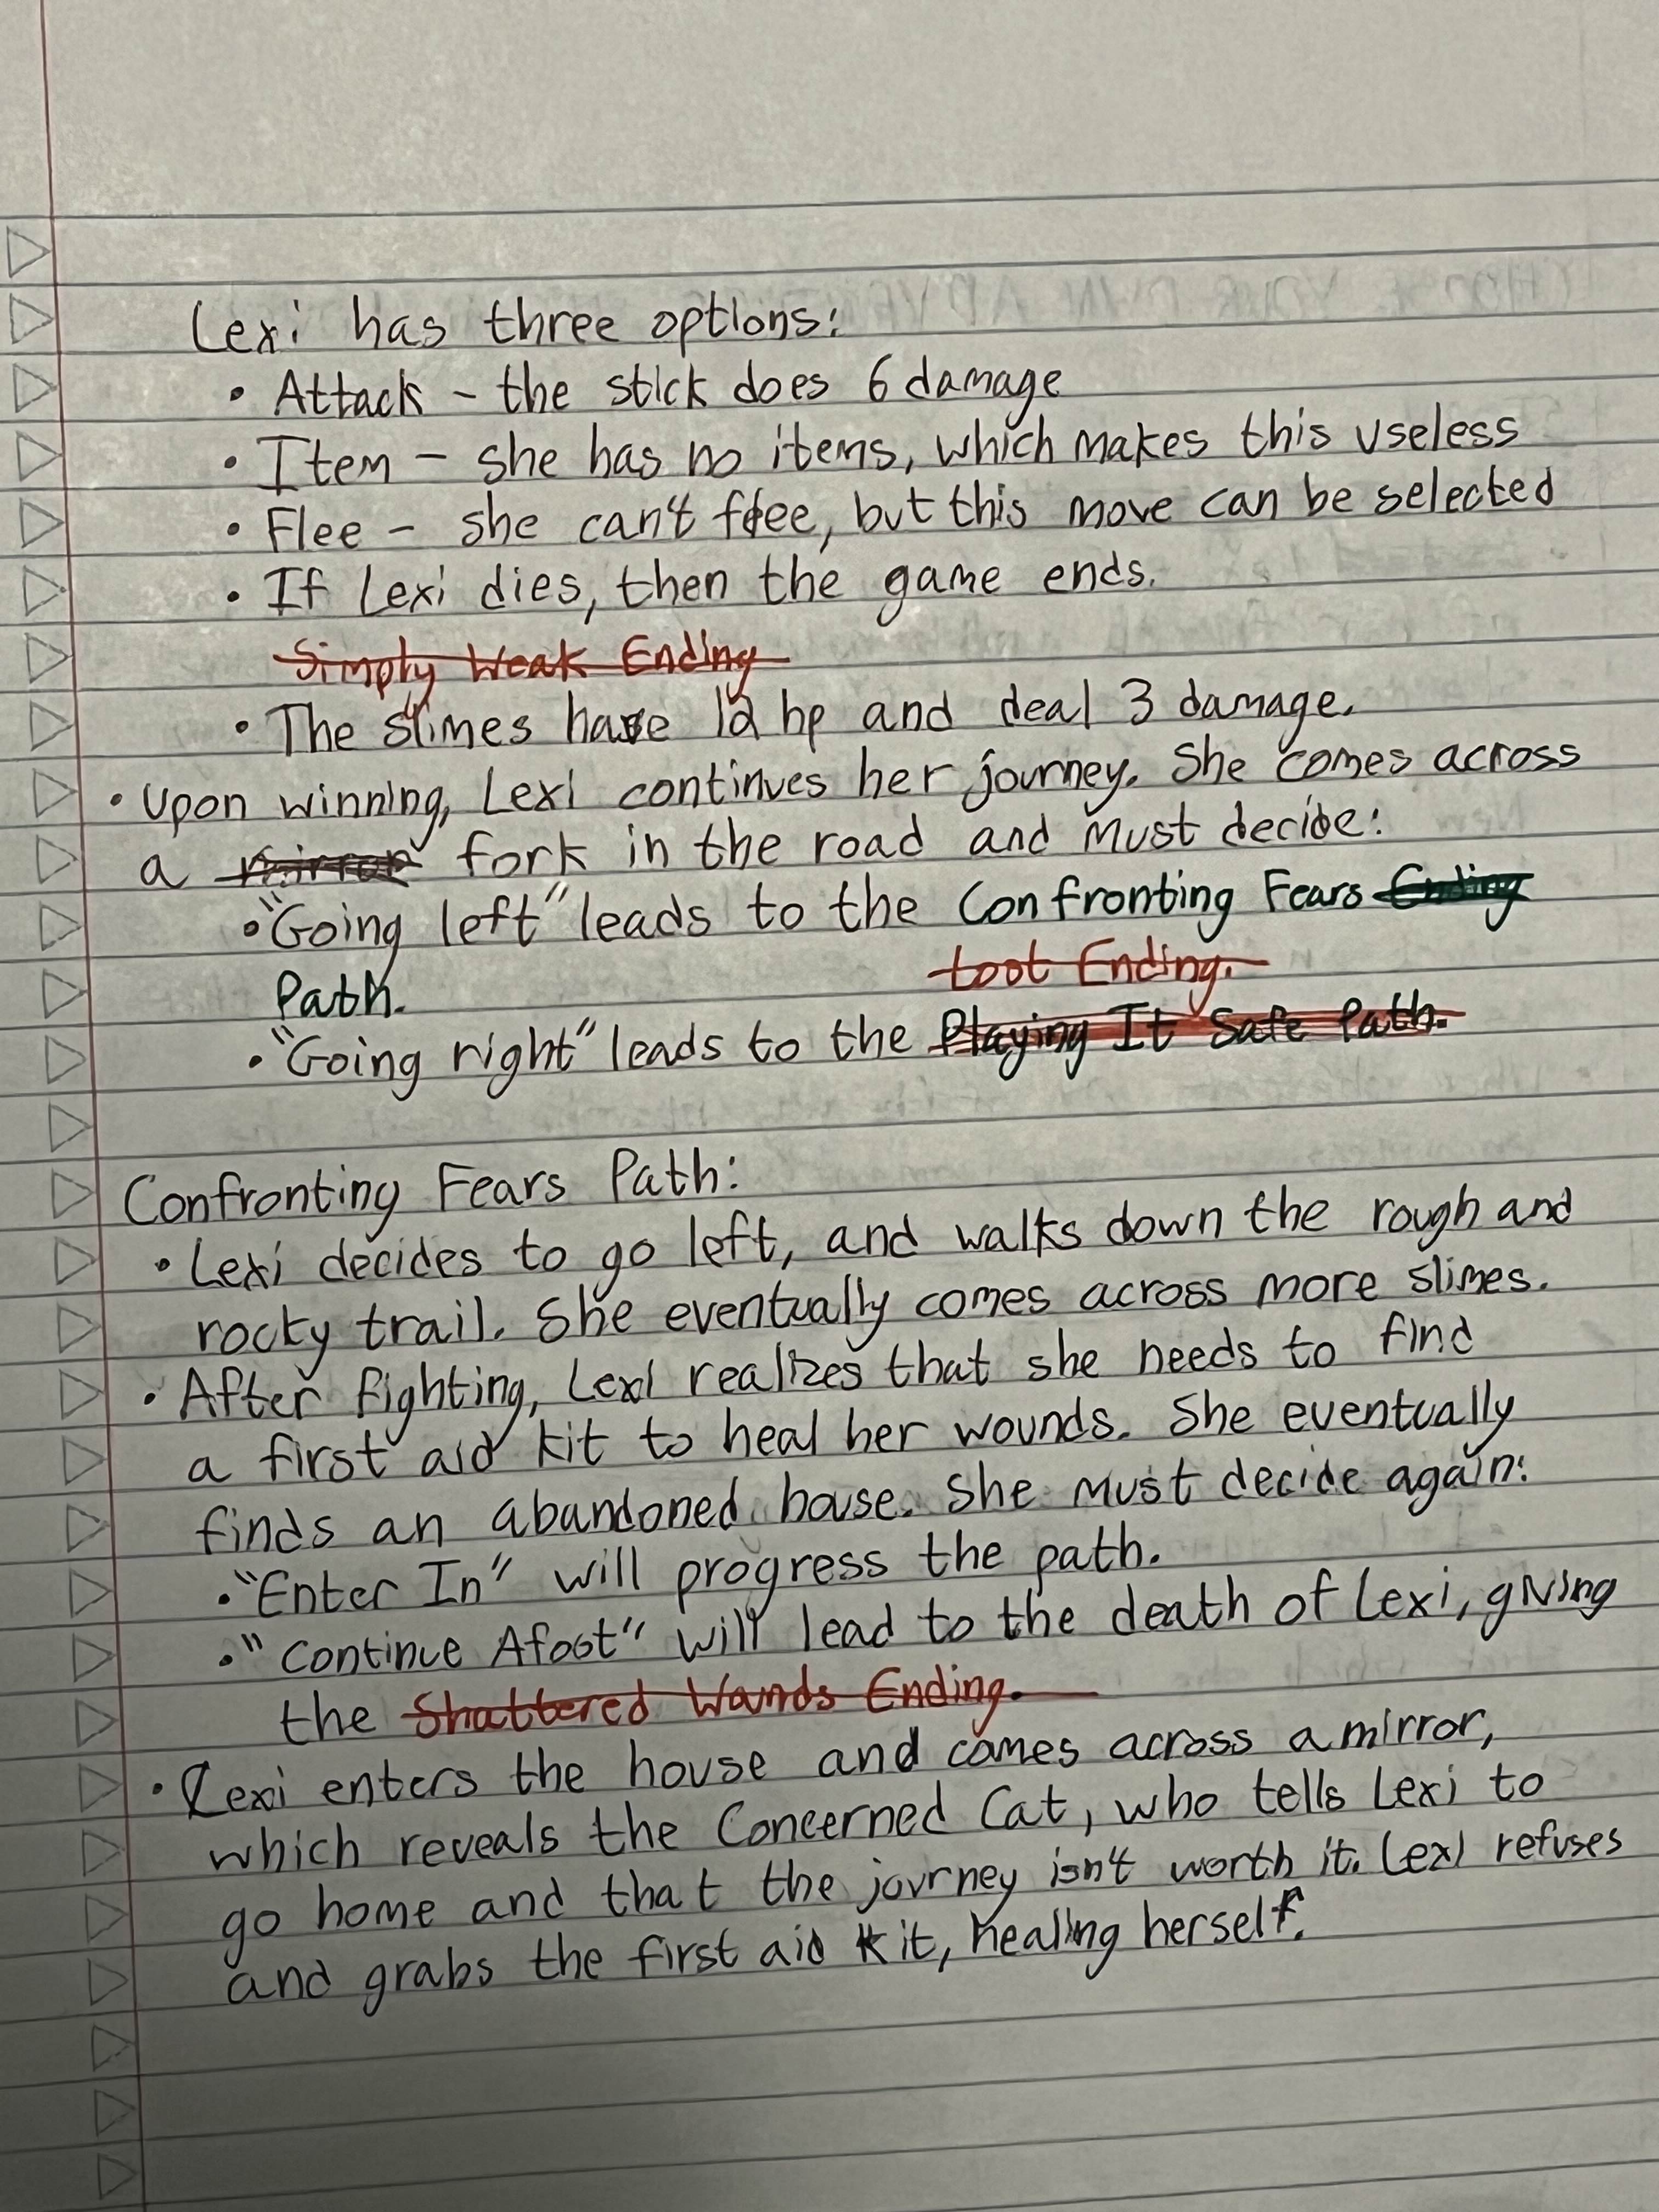 Lexi has three options:
• Attack - the stick does 6 damage
• Item - she has no items, which makes this useless
• Flee - she can't flee, but this move can be selected
• If Lexi dies, then the game ends.
Simply Weak Ending
• The slimes have 12 hp and deal 3 damage.
• Upon winning, Lexi continues her journey. She comes across
a mirror fork in the road and must decide:
• "Going left" leads to the Confronting Fears Ending
Path.
Loot Ending.
• "Going right" leads to the Playing It Safe Path.
Confronting Fears Path:
• Lexi decides to go left, and walks down the rough and
rocky trail. She eventually comes across more slimes.
• After fighting, Lexi realizes that she needs to find
a first aid kit to heal her wounds. She eventually
finds an abandoned house. She must decide again:
• "Enter In" will progress the path.
• "Continue Afoot" will lead to the death of Lexi, giving
the Shattered Wounds Ending.
• Lexi enters the house and comes across a mirror,
which reveals the Concerned Cat, who tells Lexi to
go home and that the journey isn't worth it. Lexi refuses
and grabs the first aid kit, healing herself.